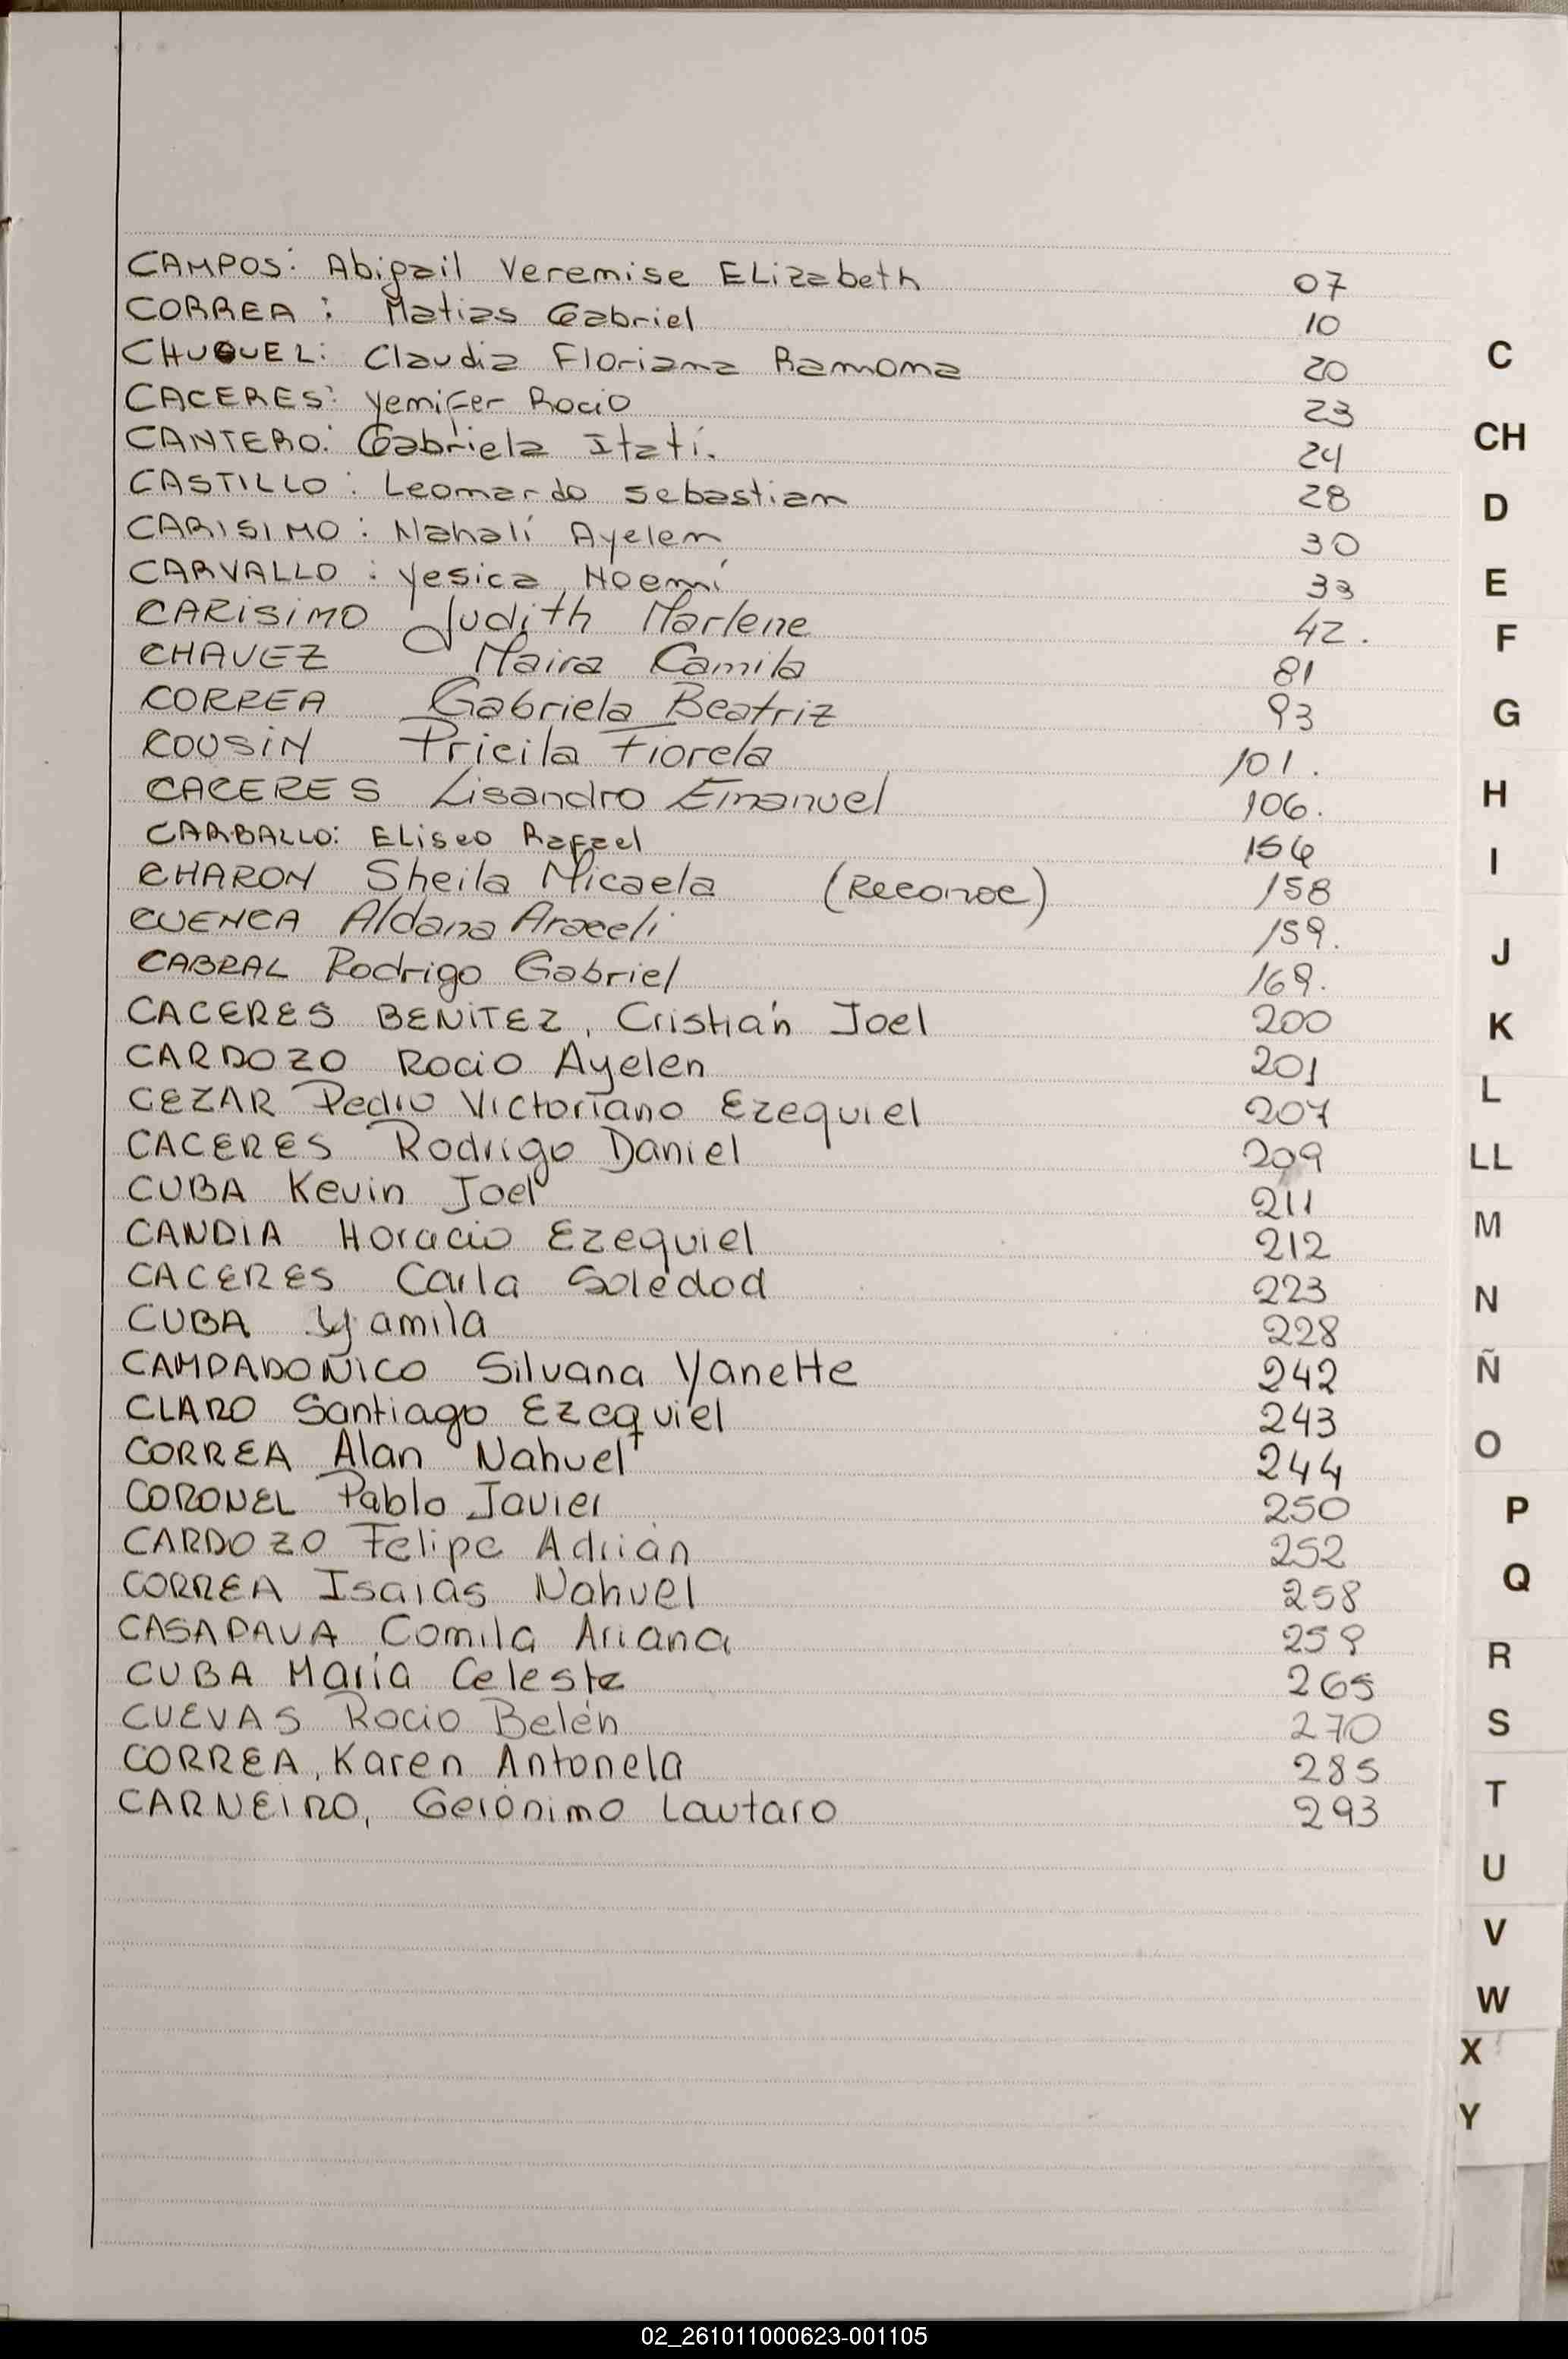 CAMPOS: Abigail Veremise ELizabeth 07
CORREA : Matias Gabriel 10
CHUQUEL: Claudia Floriana Ramona 20
CACERES: Yenifer Rocio 23
CANTERO: Gabriela Itatí. 24
CASTILLO : Leonardo Sebastian 28
CARISIMO : Nahalí Ayelen 30
CARVALLO : Yesica Noemí 33
CARISIMO Judith Marlene 42.
CHAVEZ Maira Camila 81
CORREA Gabriela Beatriz 93
COUSIN Pricila Fiorela 101.
CACERES Lisandro Emanuel 106.
CARBALLO: ELiseo Rafael
CHARON Sheila Micaela (Reconoc) 158
CUENCA Aldana Araceli 159.
CABRAL Rodrigo Gabriel 169.
CACERES BENITEZ, Cristián Joel 200
CARDOZO Rocio Ayelen 201
CEZAR Pedro Victoriano Ezequiel 207
CACERES Rodrigo Daniel 209
CUBA Kevin Joel 211
CANDIA Horacio Ezequiel 212
CACERES Carla Soledad 223
CUBA Yamila 228
CAMPADOÑICO Silvana Yanette 242
CLARO Santiago Ezequiel 243
CORREA Alan Nahuel 244
CORONEL Pablo Javier 250
CARDOZO Felipe Adrián 252
CORREA Isaías Nahuel 258
CASAPAVA Camila Ariana 259
CUBA María Celeste 265
CUEVAS Rocio Belén 270
CORREA, Karen Antonela 285
CARNEIRO, Gerónimo Lautaro 293
C
CH
D
E
F
G
H
I
J
K
L
LL
M
N
Ñ
O
P
Q
R
S
T
U
V
W
X
Y
02_261011000623-001105